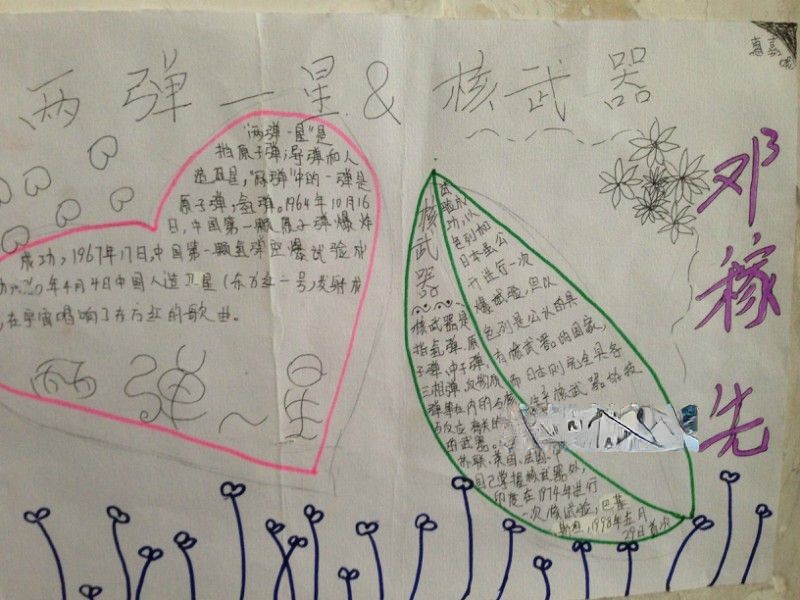 两弹一星&核武器
惠嘉
邓稼先
"两弹一星"是
指原子弹,导弹和人
造卫星,"两弹"中的一弹是
原子弹,氢弹。1964年10月16
日,中国第一颗原子弹爆炸
成功,1967年17日,中国第一颗氢弹空爆试验成
年4月4日中国人造卫星(东方红一号)发射成
,在宇宙唱响了东方红的歌曲。
两弹一星
核武器
核武器是
指氢弹、原
子弹、中子弹、
三相弹、反物质
弹等在内的与核
与反应有关的
的武器。
苏联、英国、法国、
自己掌握核武器外,
印度在1974年进行
一次核试验,巴基
斯坦,1998年五月
29日首次
试验成
功,以
色列和
日本虽公
开进行一次
爆试验,但以
色列是公认的具
有核武器的国家,
而日本则完全具备
核武器的